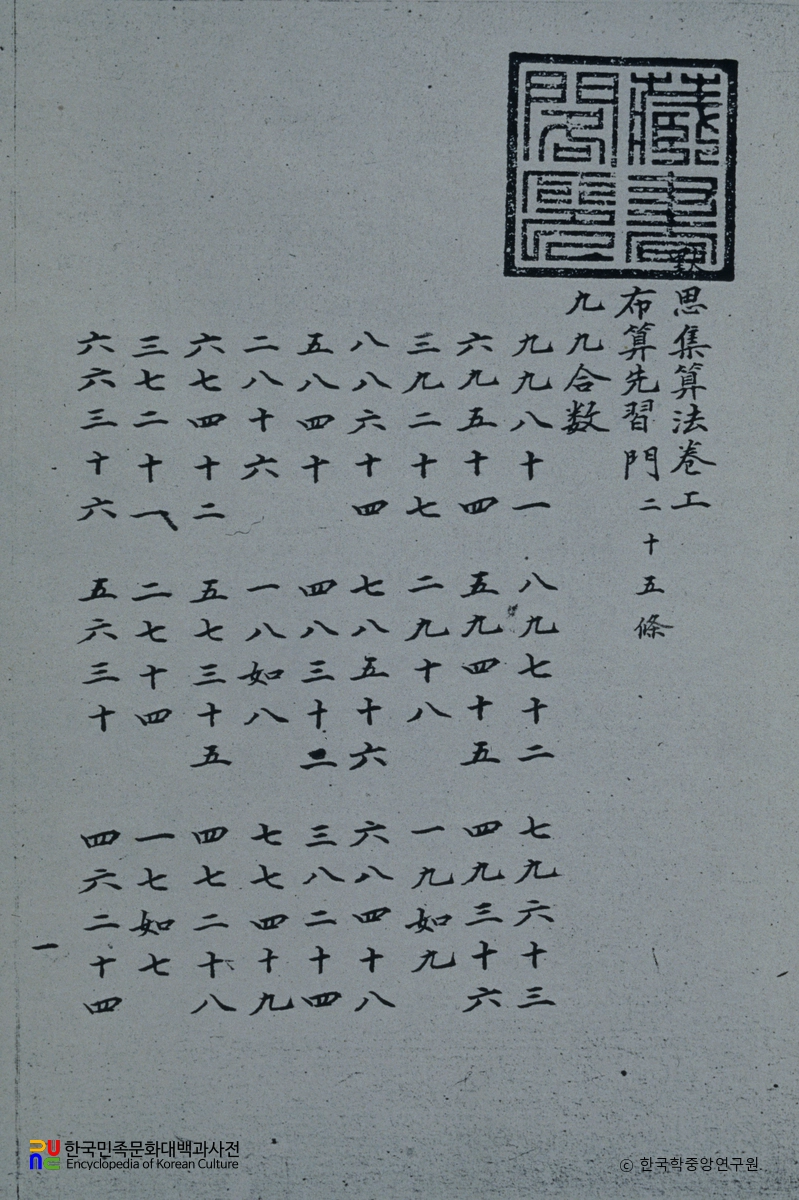 藏書閣印
默思集算法卷工
布算先習門 二十五條
九九合数
九九八十一 八九七十二 七九六十三
六九五十四 五九四十五 四九三十六
三九二十七 二九十八 一九如九
八八六十四 七八五十六 六八四十八
五八四十 四八三十二 三八二十四
二八十六 一八如八 七七四十九
六七四十二 五七三十五 四七二十八
三七二十一 二七十四 一七如七
六六三十六 五六三十 四六二十四
一
한국민족문화대백과사전
Encyclopedia of Korean Culture
© 한국학중앙연구원